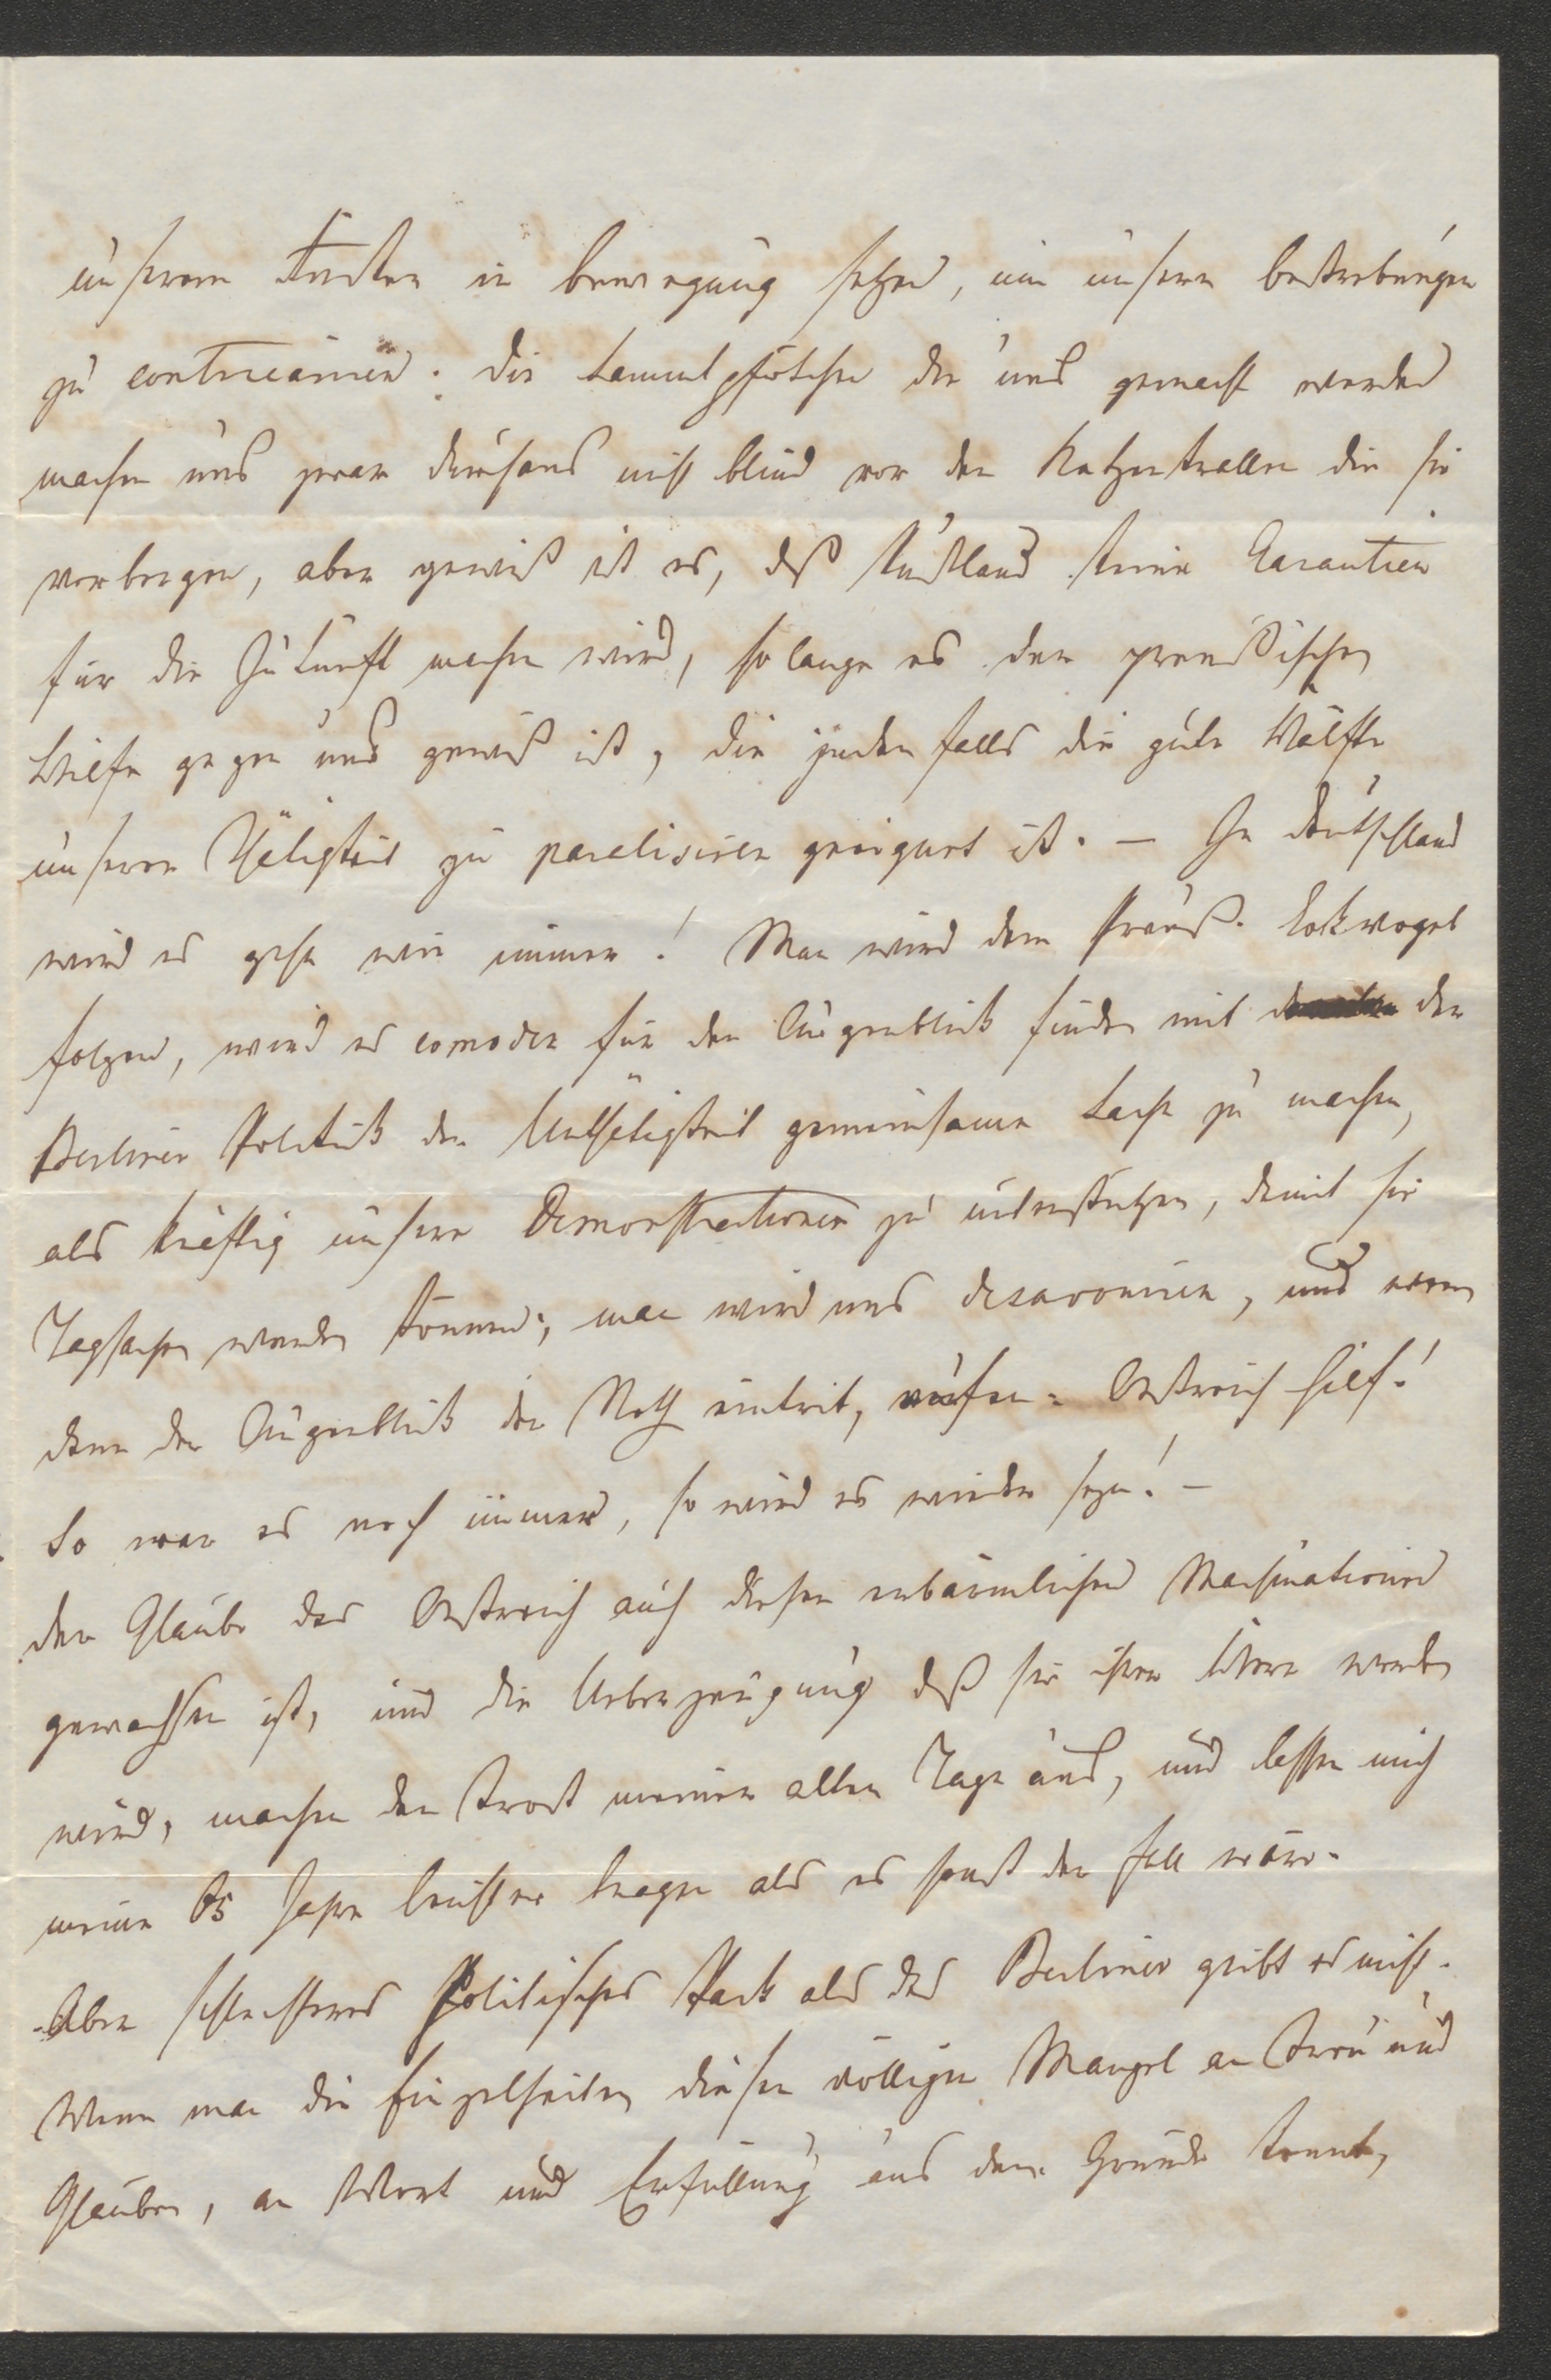 unserem Rücken in bewegung setzen, um unsere bestrebungen
zu contrecarriren. Die Sammtpfötchen die uns gemacht werden
machen uns zwar durchaus nicht blind vor den Katzenkrallen die sie
verbergen, aber gewiß ist es, daß Rußland keine Garantien
für die Zukunft machen wird, so lange es der preußischen
Hülfe gegen uns gewiß ist, die jedenfalls die gute Hälfte
unserer Thätigkeit zu paralisiren geeignet ist. – In Deutschland
wird es gehn wie immer! Man wird dem Preuß. Lokvogel
folgen, wird es comoder für den Augenblick finden mit der
Berliner Politick der Unthätigkeit gemeinsame Sache zu machen,
als kräftig unsere Demonstrationen zu unterstützen, damit sie
Thatsachen werden können; man wird uns desavouiren, und wenn
dann der Augenblick der Noth eintrit, rufen: Oestreich hilf!
So war es noch immer, so wird es wieder seyn! –
Der Glaube das Oestreich auch diesen erbärmlichen Machinationen
gewachsen ist, und die Ueberzeugung daß sie ihrer Herr werden
wird, machen den Trost meiner alten Tage aus, und lassen mich
meine 65 Jahre leichter tragen als es sonst der Fall wäre.
Aber schlechteres Politisches Pack als das Berliner giebt es nicht.
Wenn man die Einzelheiten dieses völligen Mangel an Treu und
Glauben, an Wort und Erfüllung aus dem Grunde kennt,